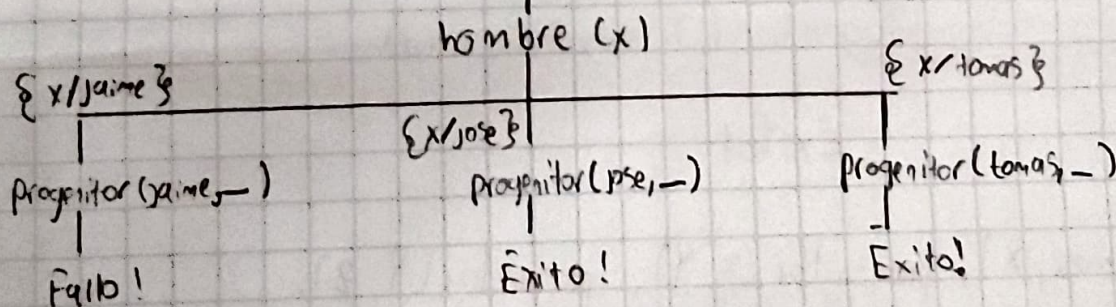 hombre (x)
{x/jaime}
{x/jose}
{x/tomas}
progenitor(jaime,_)
progenitor(jose,_)
progenitor(tomas,_)
Fallo!
Exito!
Exito!